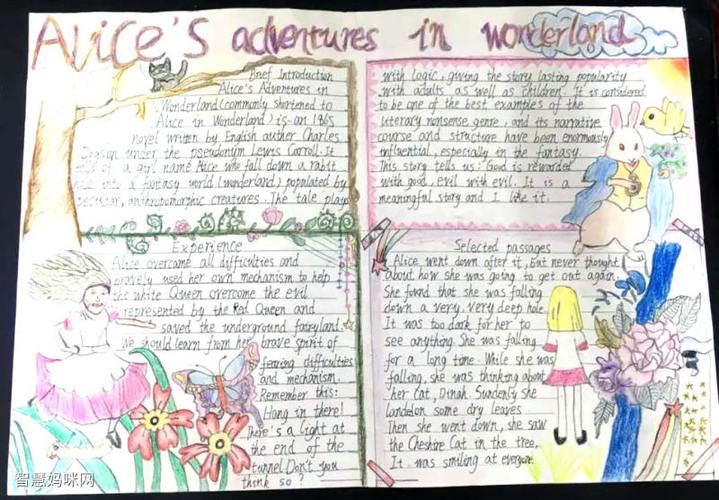 Alice's adventures in wonderland
Brief Introduction
Alice's Adventures in
Wonderland (commonly shortened to
Alice in Wonderland) is an 1865
novel written by English author Charles
Dogson under the pseudonym Lewis Carroll. It
of a girl name Alice who fall down a rabit
hole into a fantasy world (wonderland) populated by
peculiar, anthropomorphic creatures. The tale plays
with logic, giving the story lasting popularity
with adults as well as children. It is considered
to be one of the best examples of the
literary nonsense genre, and its narrative
course and structure have been enormously
influential, especially in the fantasy.
This story tells us: Good is rewarded
with good, evil with evil. It is a
meaningful story and I like it.
Experience
Alice overcame all difficulties and
bravely used her own mechanism to help
the white Queen overcome the evil
represented by the Red Queen and
saved the underground fairyland.
We should learn from her brave spirit of
fearing difficulties
and mechanism.
Remember this:
Hang in there!
There's a light at
the end of the
tunnel. Don't you
think so?
Selected passages
Alice went down after it, But never thought
about how she was going to get out again.
She found that she was falling
down a very, very deep hole.
It was too dark for her to
see anything. She was falling
for a long time. While she was
falling, she was thinking about
her cat, Dinah. Suddenly she
landed on some dry leaves
Then she went down, she saw
the Cheshire Cat in the tree,
It was smiling at everyone.
智慧妈咪网